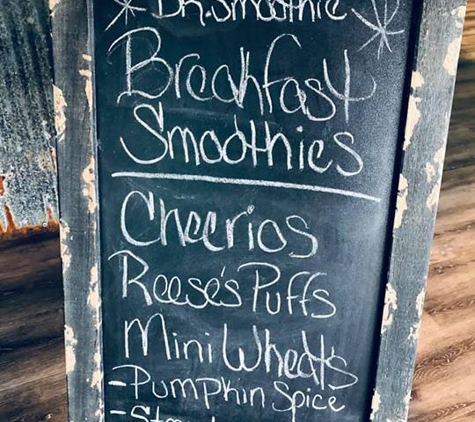 - Dr. Smoothie
Breakfast
Smoothies
Cheerios
Reese's Puffs
Mini Wheats
- Pumpkin Spice